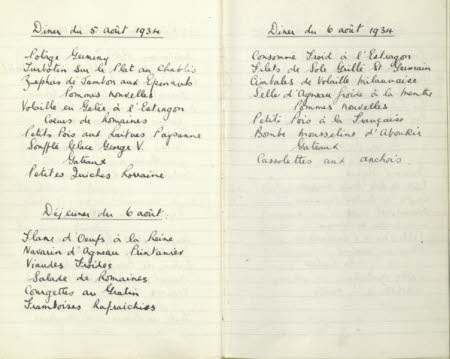 Diner du 5 août 1934
Potage Germiny
Turbotin sur le Plat au Chablis
Zephirs de Jambon aux Epinards
Pommes nouvelles
Volaille en Gelée à l'Estragon
Coeurs de Romaines
Petits Pois aux Laitues Paysanne
Soufflé Glace George V.
Gateaux
Petites Quiches Lorraine
Déjeuner du 6 août.
Flanc d'Oeufs à la Reine
Navarin d'Agneau Printanier
Viandes Froides
Salade de Romaines
Courgettes au Gratin
Framboises Rafraichies
Diner du 6 août 1934
Consommé Froid à l'Estragon
Filets de Sole Grillé St Germain
Timbales de Volaille milannaise
Selle d'Agneau froide à la menthe
Pommes nouvelles
Petits Pois à la Française
Bombe mousseline d'Aboukir
Gateaux
Cassolettes aux anchois.